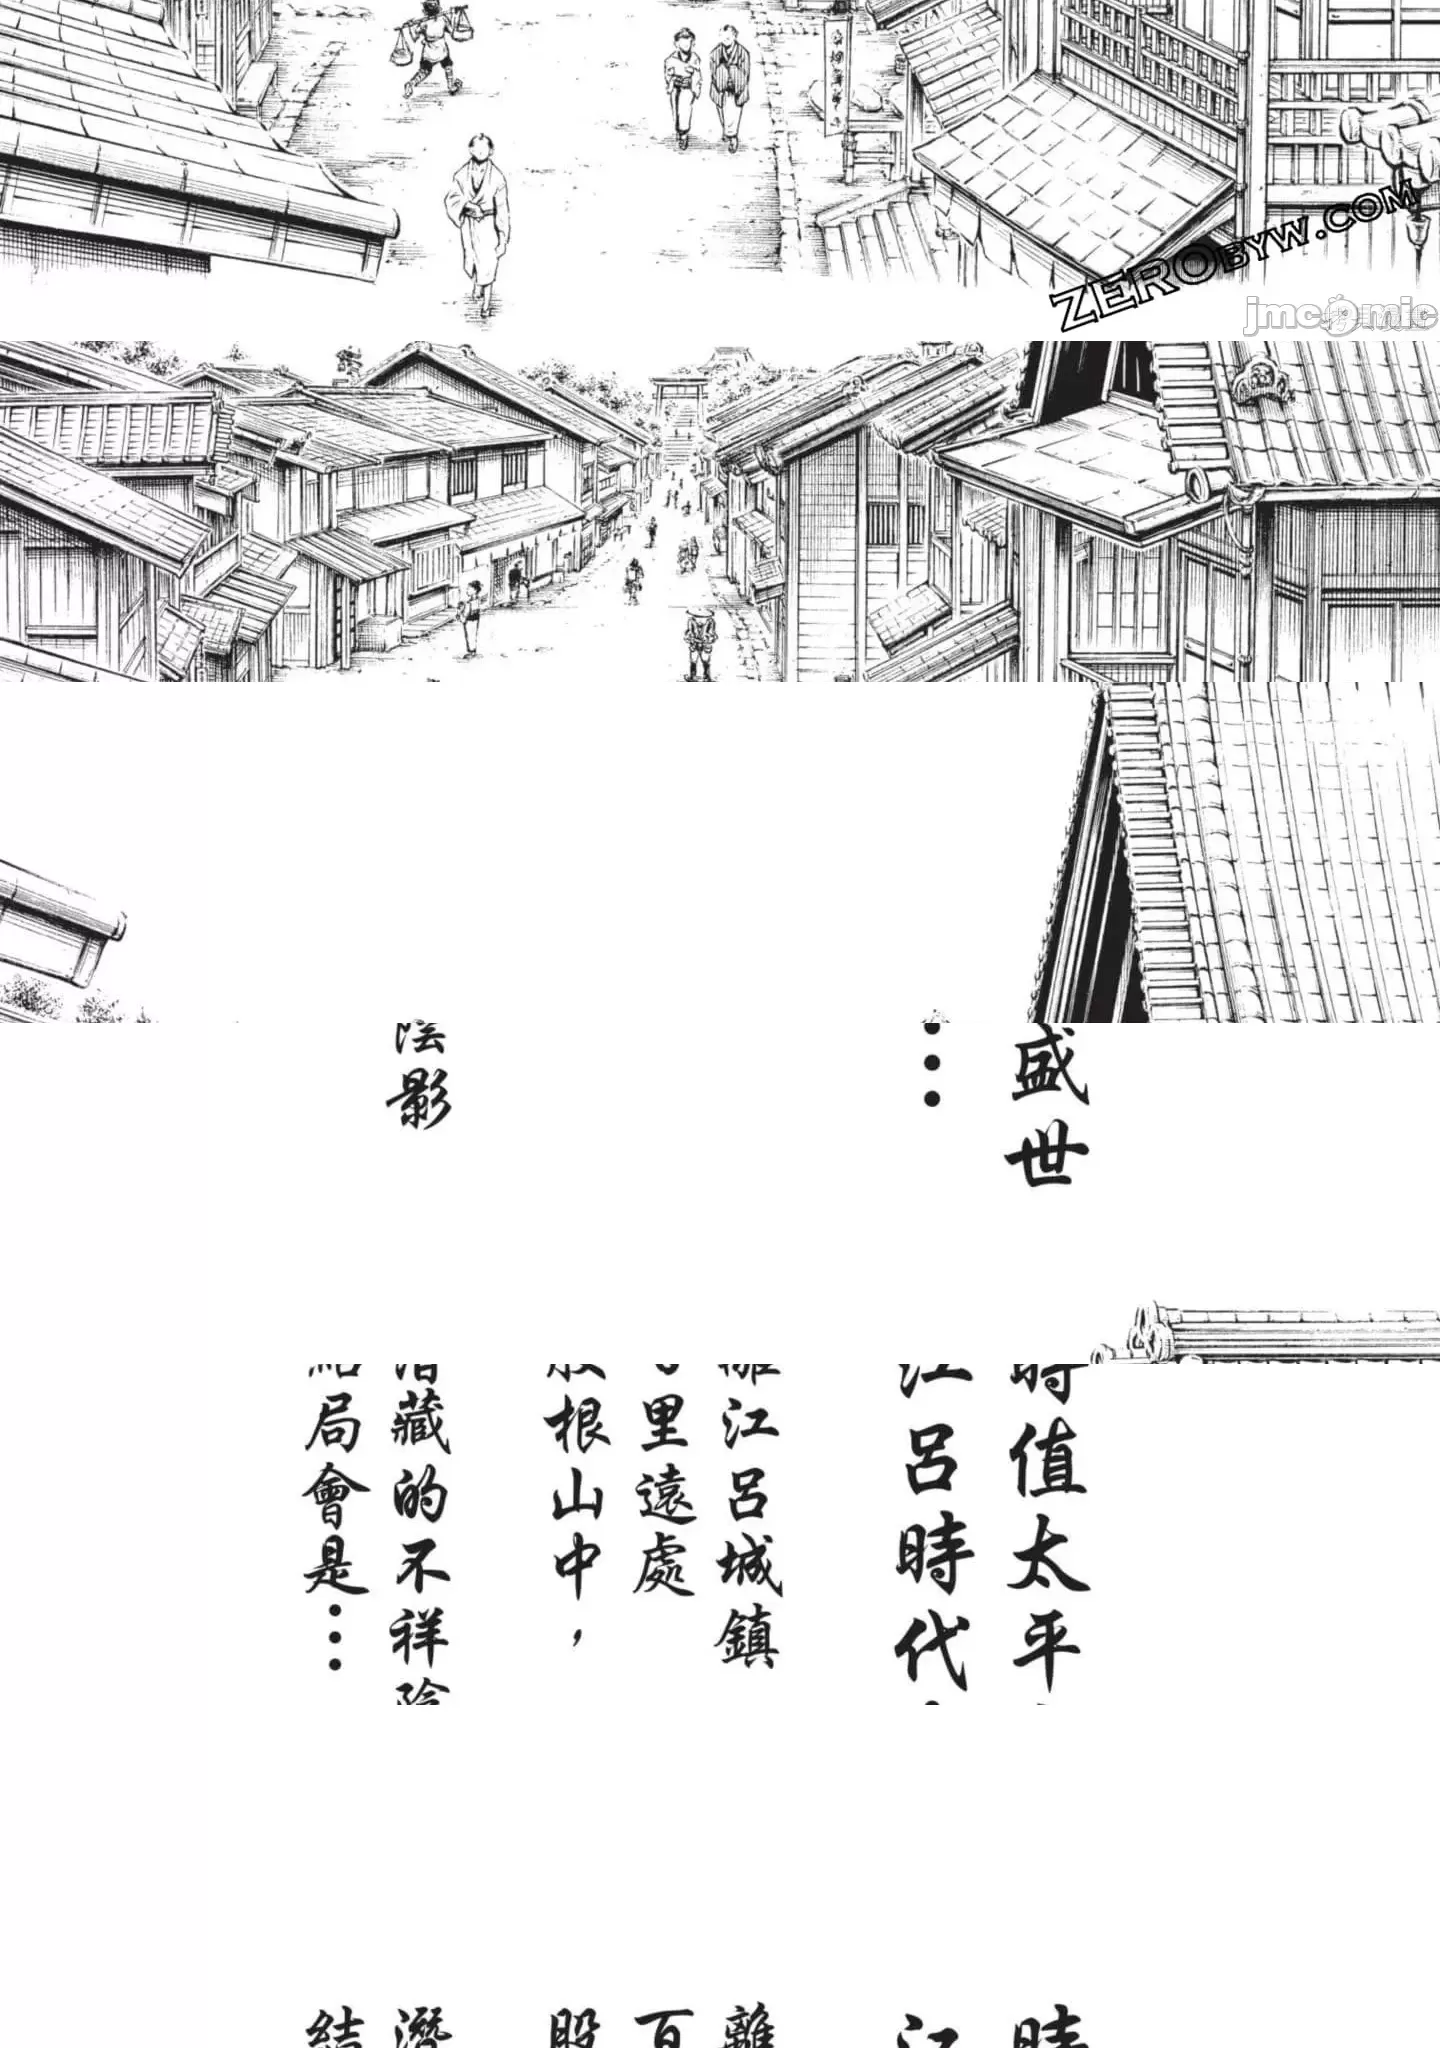 ZEROBYW.COM
jmcomic
盛世
……
陰影
時值太平
江呂時代
離江呂城鎮
百里遠處
股根山中，
潛藏的不祥陰
結局會是……
時
江
離
百
股
潛
結